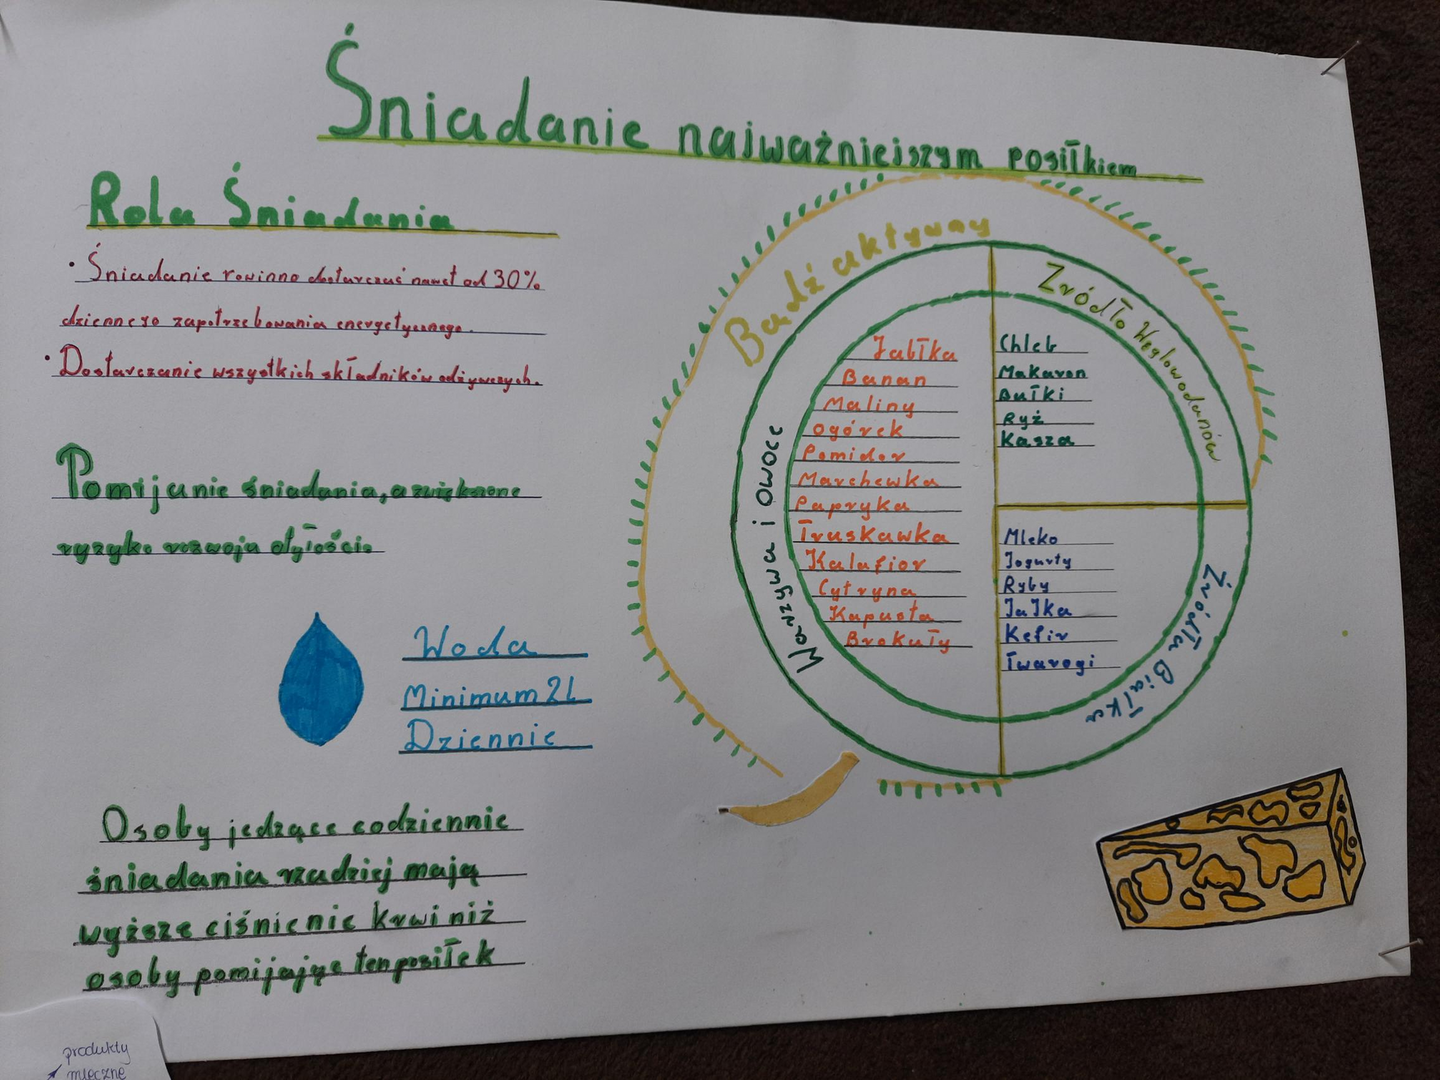 Śniadanie najważniejszym posiłkiem
Rola Śniadania
• Śniadanie rowinno dostarczać nawet od 30%
dziennego zapotrzebowania energetycznego.
• Dostarczanie wszystkich składników odżywczych.
Pomijanie śniadania, a zwiększone
ryzyko rozwoju otyłości
Woda
Minimum 2L
Dziennie
Osoby jedzące codziennie
śniadania rzadziej mają
wyższe ciśnienie krwi niż
osoby pomijające ten posiłek
Bądź aktywny
Warzywa i owoce
Jabłka
Banan
Maliny
Ogórek
Pomidor
Marchewka
Papryka
Truskawka
Kalafior
Cytryna
Kapusta
Brokuły
Źródło Węglowodanów
Chleb
Makaron
Bułki
Ryż
Kasza
Źródła Białka
Mleko
Jogurty
Ryby
Jajka
Kefir
Twarogi
produkty
mleczne